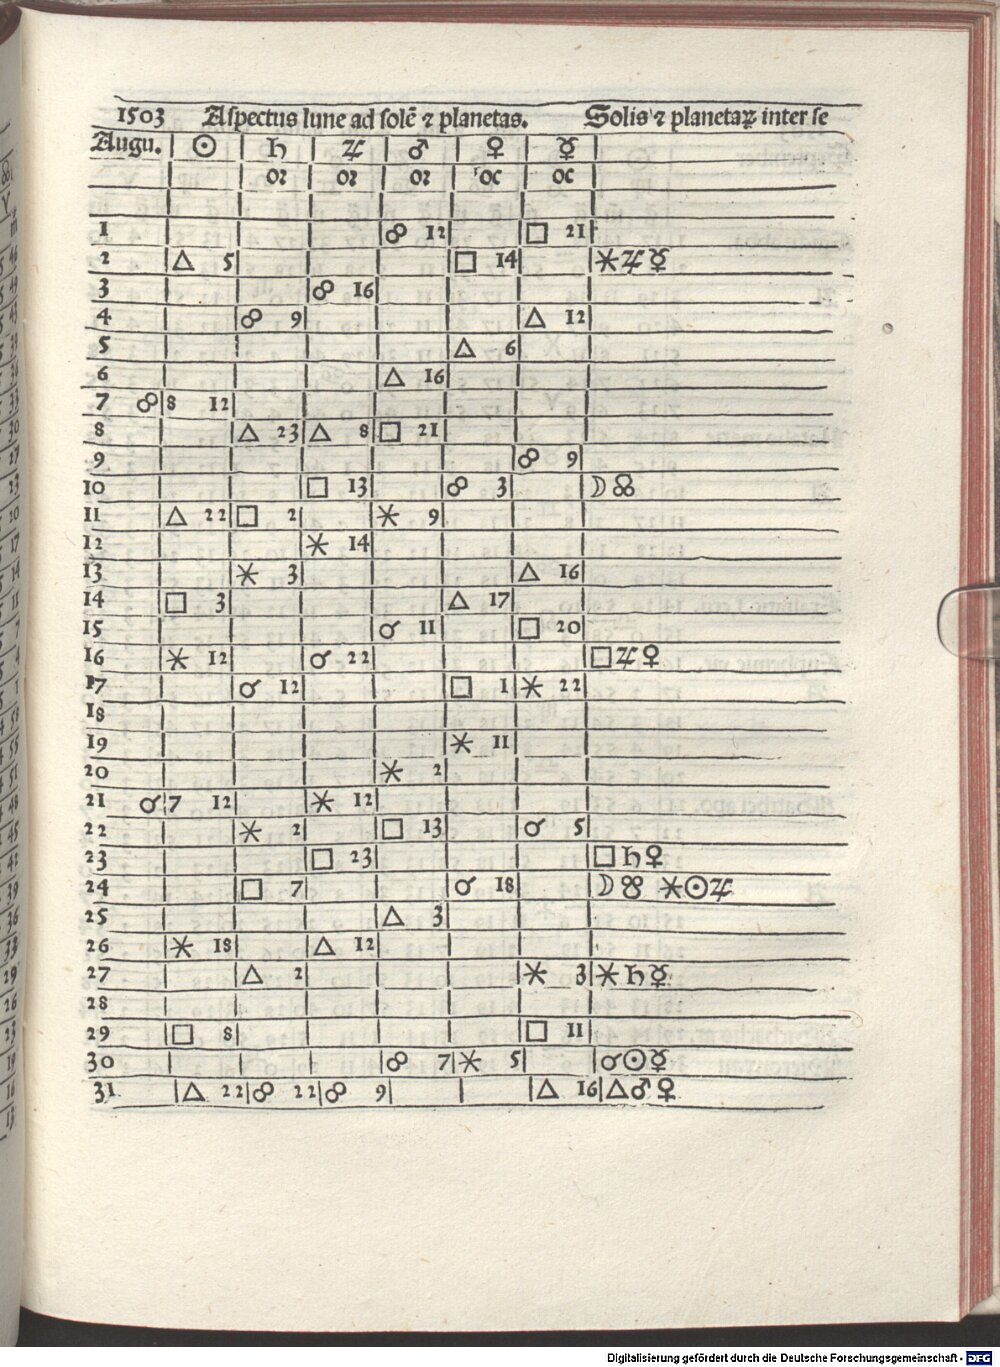 1503 Aspectus lune ad solē ⁊ planetas. Solis ⁊ planetaꝝ inter se
Augu. ☉ ♄ ♃ ♂ ♀ ☿
oꝛ oꝛ oꝛ oc oc
1 ☍ 12 □ 21
2 △ 5 □ 14 ⚹♃☿
3 ☍ 16
4 ☍ 9 △ 12
5 △ 6
6 △ 16
7 ☍ 8 12
8 △ 23 △ 8 □ 21
9 ☍ 9
10 □ 13 ☍ 3 ☽☊
11 △ 22 □ 2 ⚹ 9
12 ⚹ 14
13 ⚹ 3 △ 16
14 □ 3 △ 17
15 ☌ 11 □ 20
16 ⚹ 12 ☌ 22 □♃♀
17 ☌ 12 □ 1 ⚹ 22
18
19 ⚹ 11
20 ⚹ 2
21 ☌ 7 12 ⚹ 12
22 ⚹ 2 □ 13 ☌ 5
23 □ 23 □♄♀
24 □ 7 ☌ 18 ☽☋ ⚹☉♃
25 △ 3
26 ⚹ 18 △ 12
27 △ 2 ⚹ 3 ⚹♄☿
28
29 □ 8 □ 11
30 ☍ 7 ⚹ 5 ☌☉☿
31 △ 22 ☍ 22 ☍ 9 △ 16 △♂♀
Digitalisierung gefördert durch die Deutsche Forschungsgemeinschaft - DFG